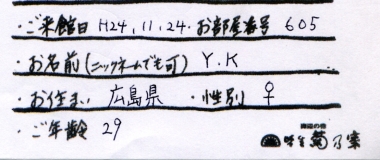 ・ご来館日 H24.11.24・お部屋番号 605
・お名前(ニックネームでも可) Y.K
・お住まい 広島県 ・性別 ♀
・ご年齢 29